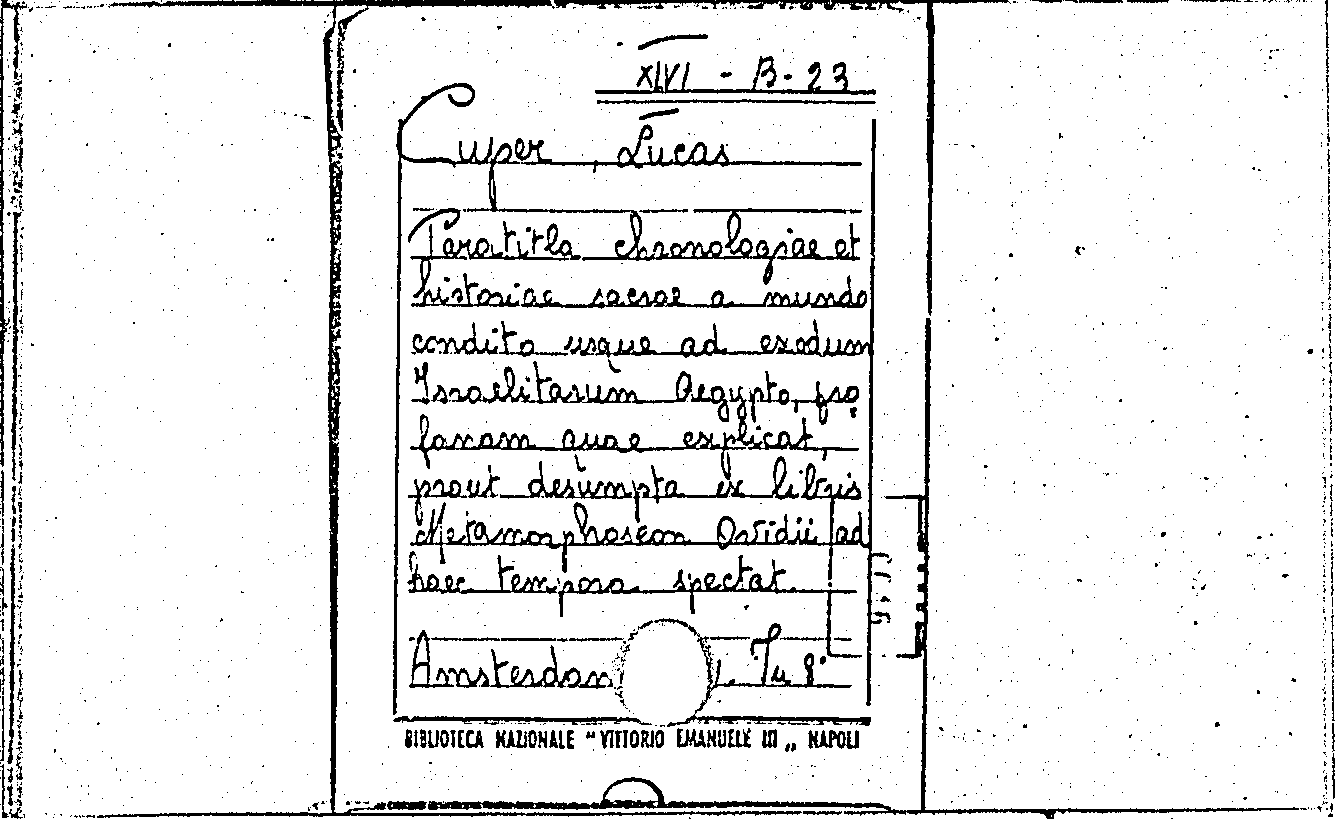 XLVI - B - 23
Cuper, Lucas
Paratitla chronologiae et
historiae sacrae a mundo
condito usque ad exodum
Israelitarum Aegypto, pro
fanam quae explicat,
prout desumpta ex libris
Metamorphoseon Ovidii ad
haec tempora spectat.
Amsterdam In 8°
BIBLIOTECA NAZIONALE "VITTORIO EMANUELE III„ NAPOLI